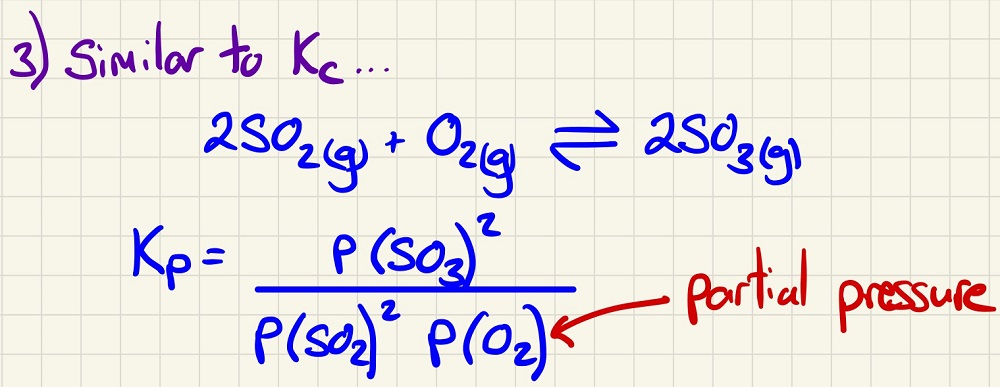 3) Similar to Kc...
2SO2(g) + O2(g) ⇌ 2SO3(g)
Kp = P(SO3)² / P(SO2)² P(O2)
partial pressure